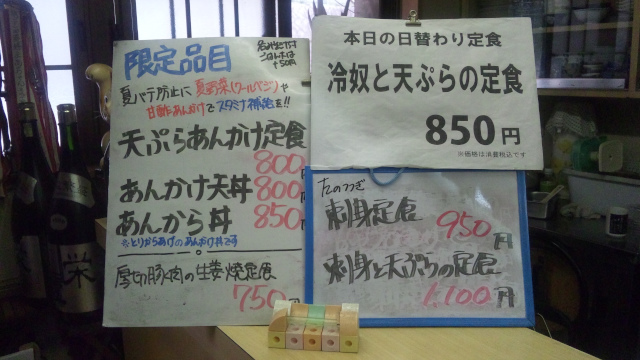 限定品目
夏バテ防止に夏野菜(クールベジ)や
甘酢あんかけでスタミナ補給を!!
天ぷらあんかけ定食
800円
あんかけ天丼 800円
あんから丼 850
※とりからあげのあんかけ丼です
厚切豚肉の生姜焼定食
750円
本日の日替わり定食
冷奴と天ぷらの定食
850円
※価格は消費税込です
刺身定食 950円
刺身と天ぷらの定食
1,100円
栄